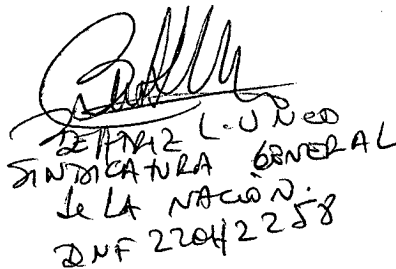 BEATRIZ L. UNCO
SINDICATURA GENERAL
de LA NACIÓN.
DNF 22042258